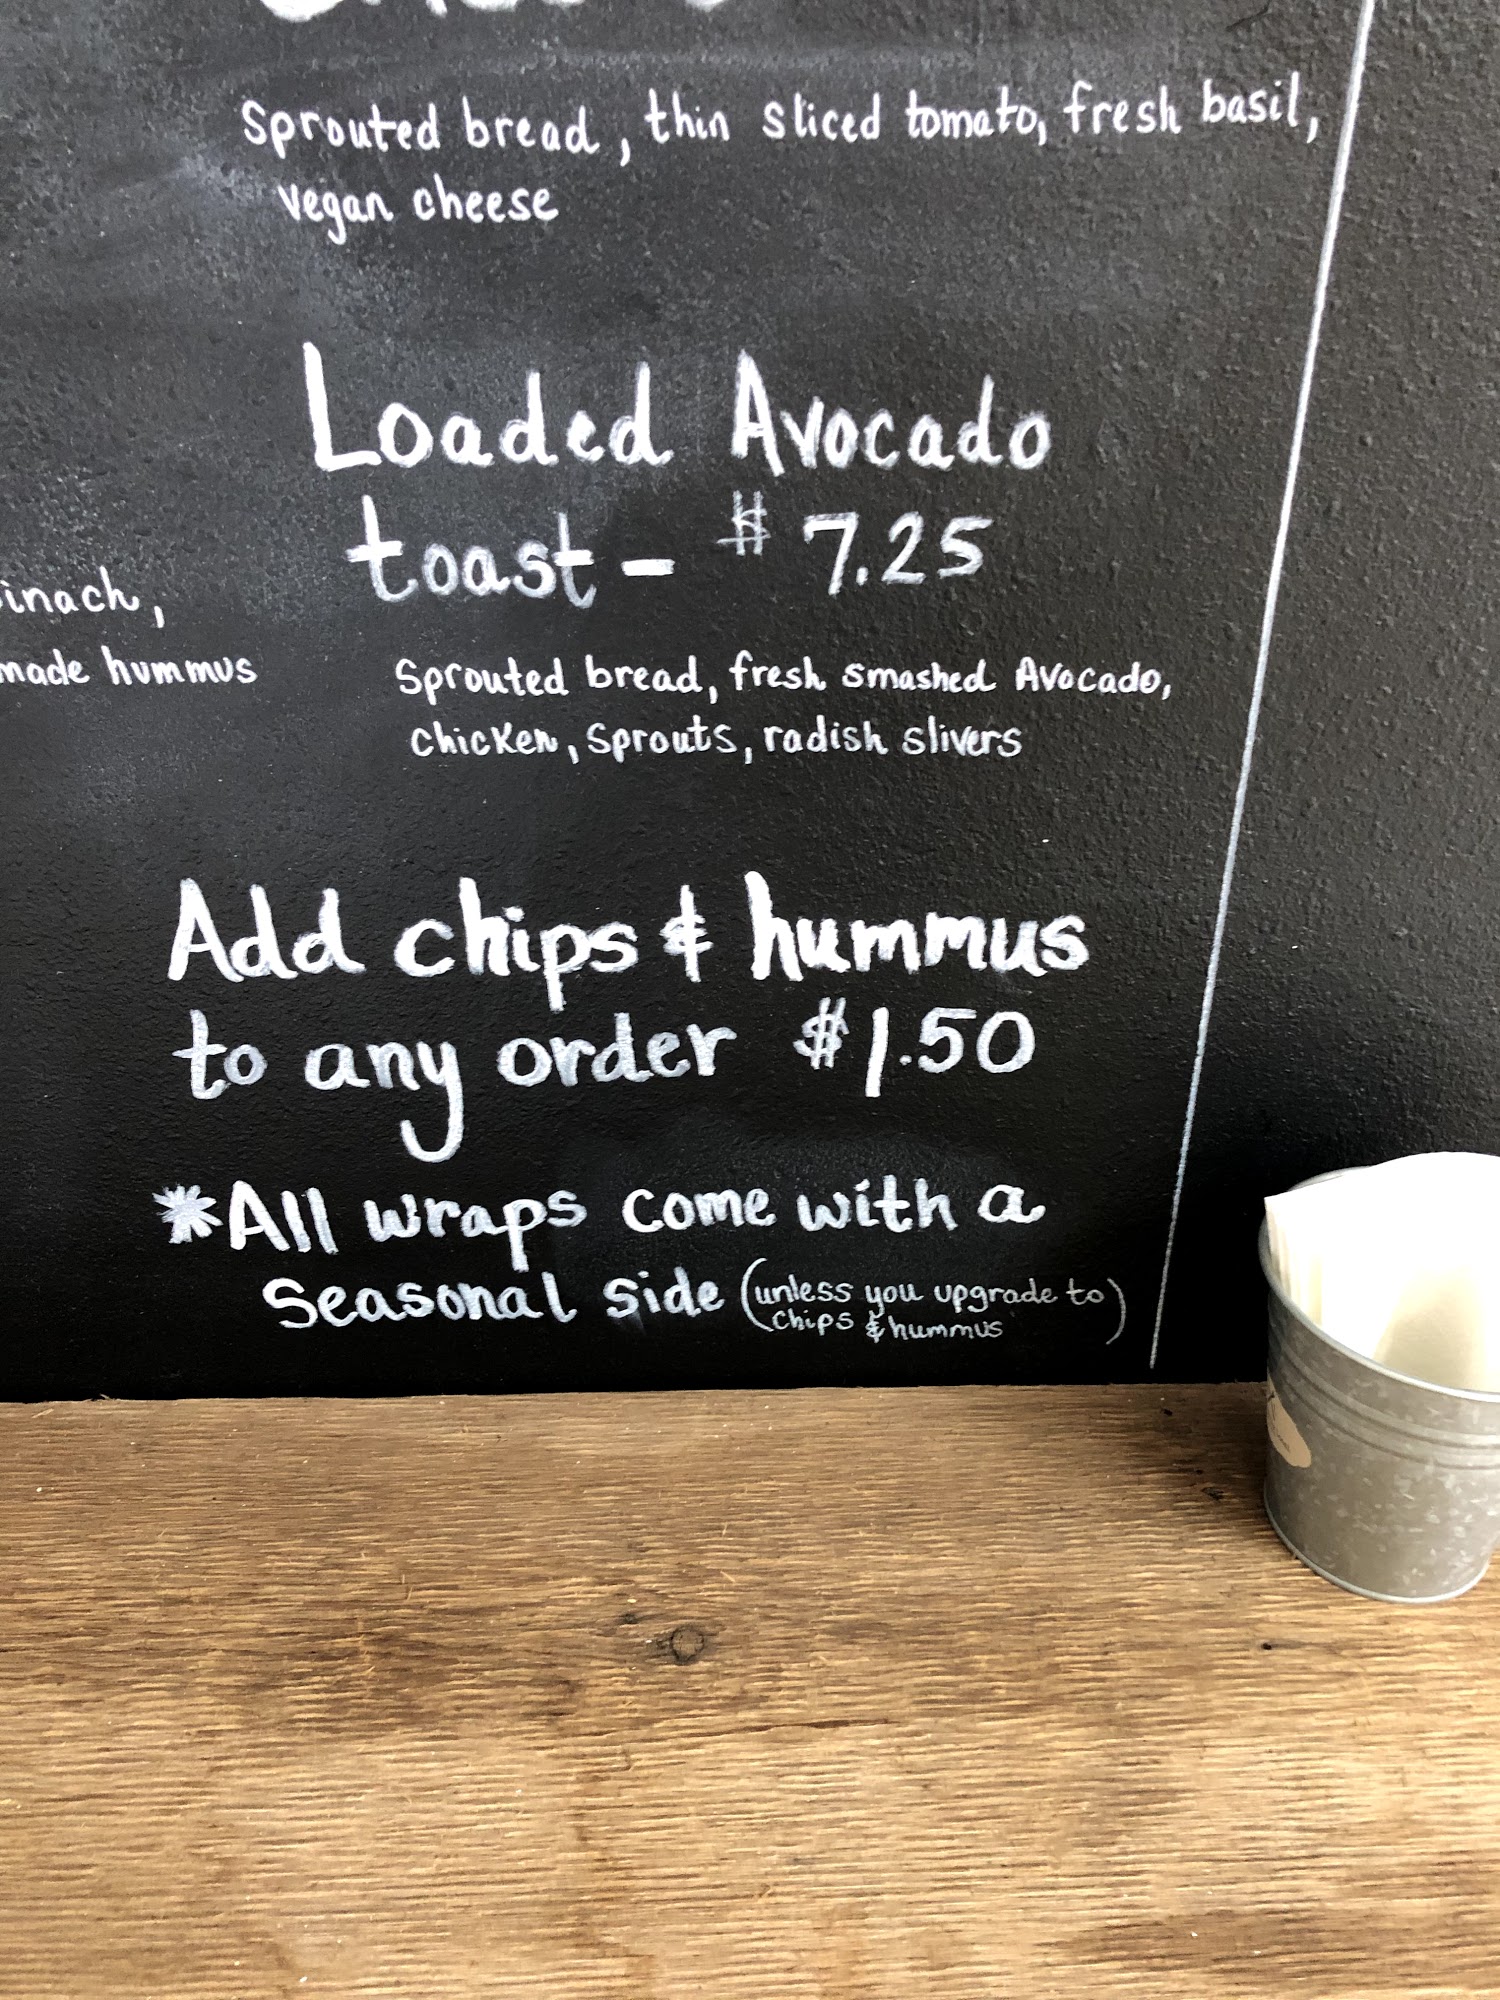 Sprouted bread, thin sliced tomato, fresh basil,
vegan cheese
Loaded Avocado
toast - $7.25
Sprouted bread, fresh smashed Avocado,
chicken, sprouts, radish slivers
made hummus
Add chips & hummus
to any order $1.50
*All wraps come with a
Seasonal side (unless you upgrade to
chips & hummus)